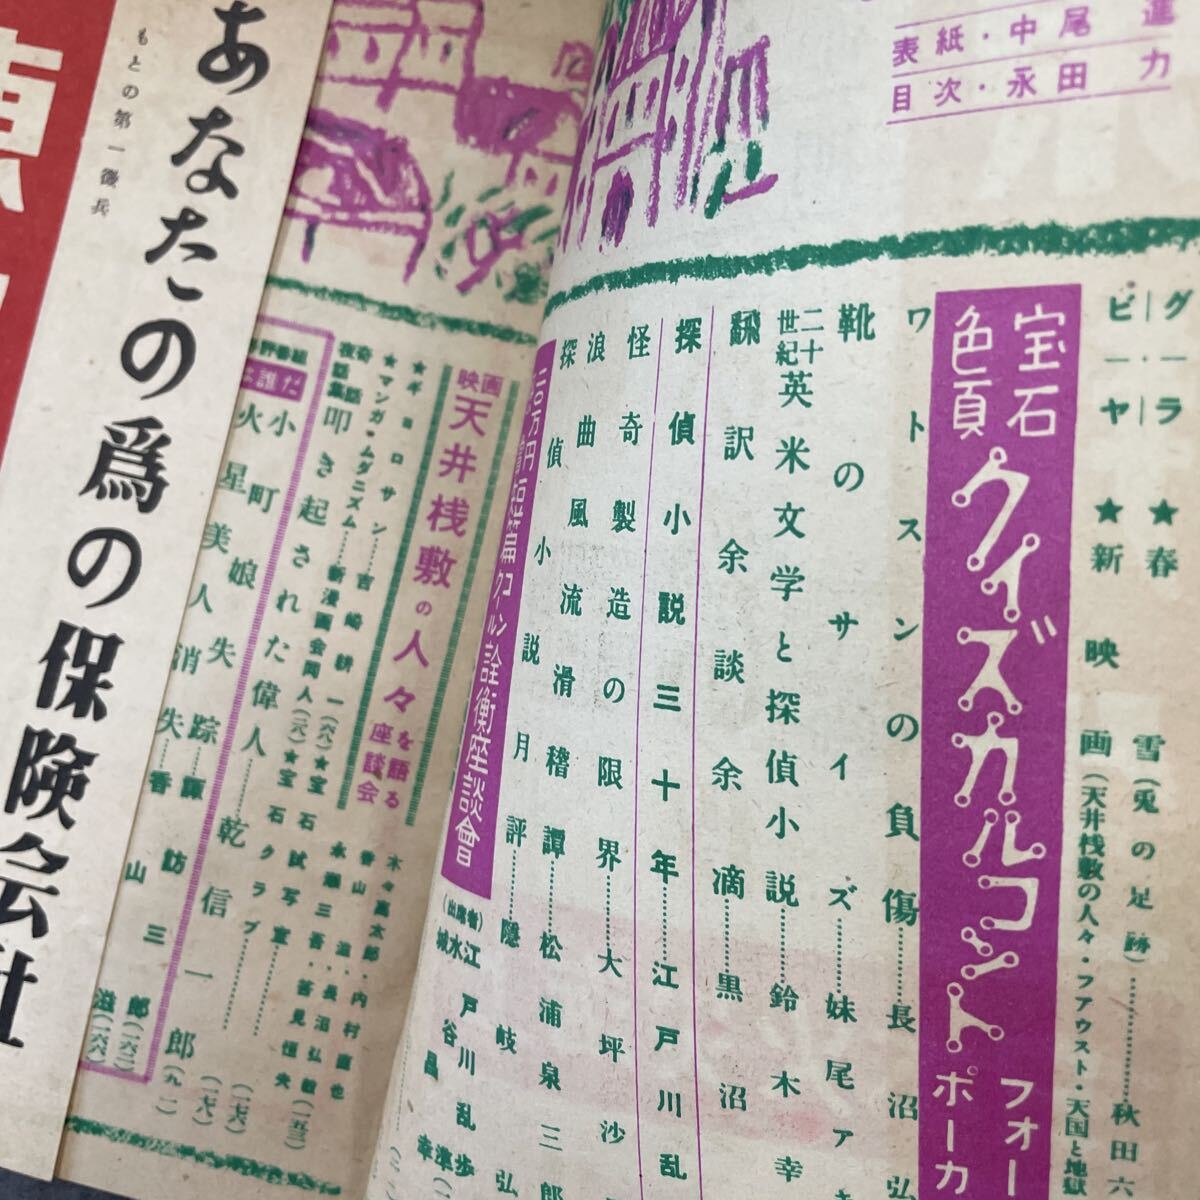 表紙・中尾進
目次・永田力
グラビヤ
★春 雪(兎の足跡)…………秋田六
★新映画(天井桟敷の人々・フアウスト・天国と地獄
宝石色頁
クイズカルコント
フォー
ポーカ
ワトスンの負傷……長沼弘
靴のサイズ……妹尾アキ
二十世紀英米文学と探偵小説……鈴木幸
飜訳余談余滴……黒沼
探偵小説三十年……江戸川乱
怪奇製造の限界……大坪沙
浪曲風流滑稽譚……松浦泉三郎
探偵小説月評……隠岐弘
二〇万円懸賞短篇コンクール詮衡座談會
(出席者)
江戸川乱歩
水谷準
城昌幸
映画 天井桟敷の人々を語る座談会
木々高太郎・内村直也
香山滋・長沼弘毅
永瀬三吾・筈見恒夫(一五三)
★ギョロサン……吉崎耕一(六八)★宝石試写室……(一七六)
★マンガ・ムダニズム……新漫画会同人(二八)★宝石クラブ……(二七八)
奇話夜話集
叩き起された偉人……乾信一郎(九一)
は誰だ
小町娘失踪……諏訪三郎(一六二)
火星美人消失……香山滋(一六六)
あなたの爲の保険会社
もとの第一徴兵